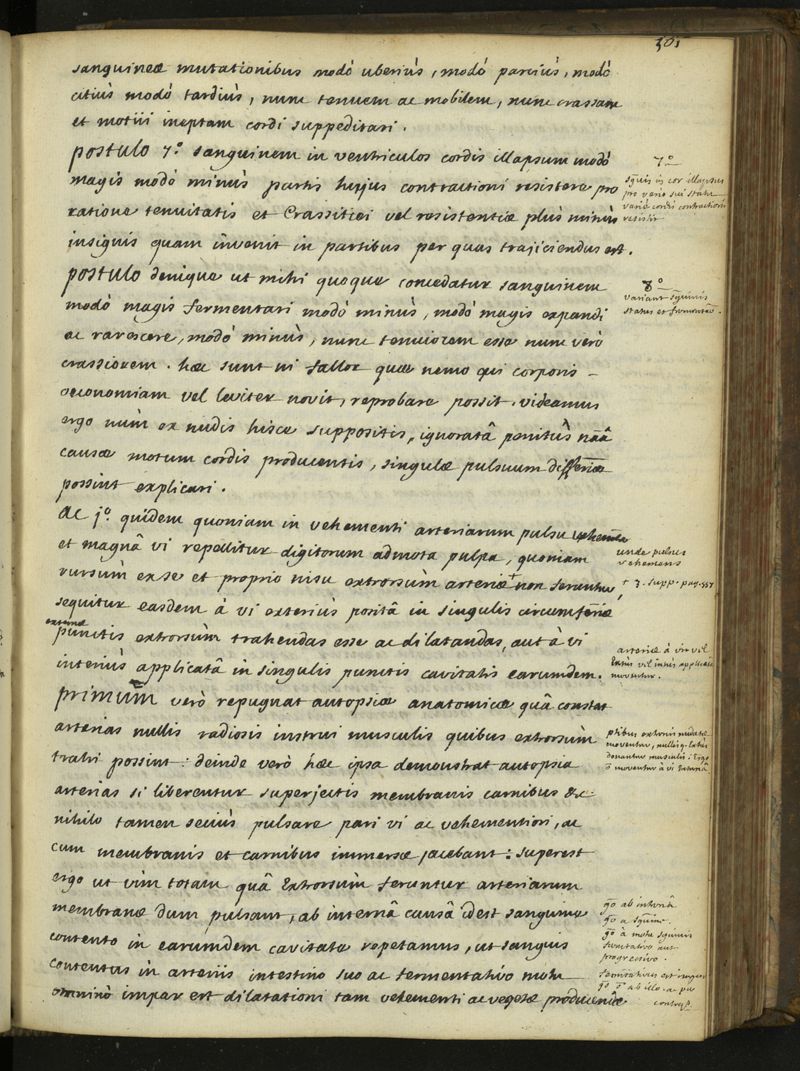 305
sanguineæ mutationibus modò uberiùs, modò parciùs, modò
citiùs modò tardiùs, nunc tenuem ac mobilem, nunc crassam
et motui ineptam cordi suppeditari.
postulo 7.º sanguinem in ventriculos cordis illapsum modò
magis modò minùs partis hujus contractioni resistere pro
ratione tenuitatis et Crassitiei vel resistentiæ plùs minùs
insignis quam invenit in partibus per quas trajiciendus est.
7.º
sguis in cor illapsus
pro vario sui statu
variè cordis contractioni
resistit
postulo denique ut mihi quoque concedatur sanguinem
modò magis fermentari modò minùs, modò magis expandi
ac rarescere, modò minùs, nunc tenuiorem esse nunc verò
crassiorem. hæc sunt ni fallor quæ nemo qui corporis -
œconomiam vel leviter novit, reprobare possit. videamus
ergo num ex nudis hisce suppositis, ignoratâ penitùs nãâ
causæ motum cordis producentis, singulæ pulsuum differ̃iæ
possint explicari.
8.º
variant sguinis
status et fermentaõ.
Ac 1.º quidem quoniam in vehementi arteriarum pulsu vehemẽter
et magnâ vi repellitur digitorum admota pulpa, quoniam
rursum ex se et proprio nisu extrorsùm arteriæ + non feruntur,
sequitur easdem à vi exteriùs positâ in singulis circumfer̃iæ
externæ
punctis extrorsùm trahendas esse ac dilatandas, aut à vi
interiùs applicatâ in singulis punctis cavitatis earumdem.
unde pulsus
vehemens
+ 3. supp. pag. 357
arteriæ à vi vel
extùs vel intùs applicatâ
moventur.
primum verò repugnat autopsiæ anatomicæ quâ constat
arterias nullis radiosis instrui musculis quibus extrorsùm
trahi possint: deinde verò hæc ipsa demonstrat autopsia
arterias si liberentur superjectis membranis carnibus &c.
nihilo tamen seciùs pulsare pari vi ac vehementiori, ac
cum membranis et carnibus immersæ jacebant: superest
ergo ut vim totam quâ Extrorsùm feruntur arteriarum
membranæ dum pulsant, ab internâ causâ idest sanguine
contento in earumdem cavitate repetamus, ut sanguis
contentus in arteriis intestino suo ac fermentativo motu
omninò impar est dilatationi tam vehementi ac vegetæ producendæ
ptibus externis nudatæ
moventur, nullisq. extùs
donantur musculis: Ergo
õ moventur à vi Externâ
g̃o ab internâ
g̃o a sguine.
g̃o à motu sguinis
fermtativo aut
progressivo.